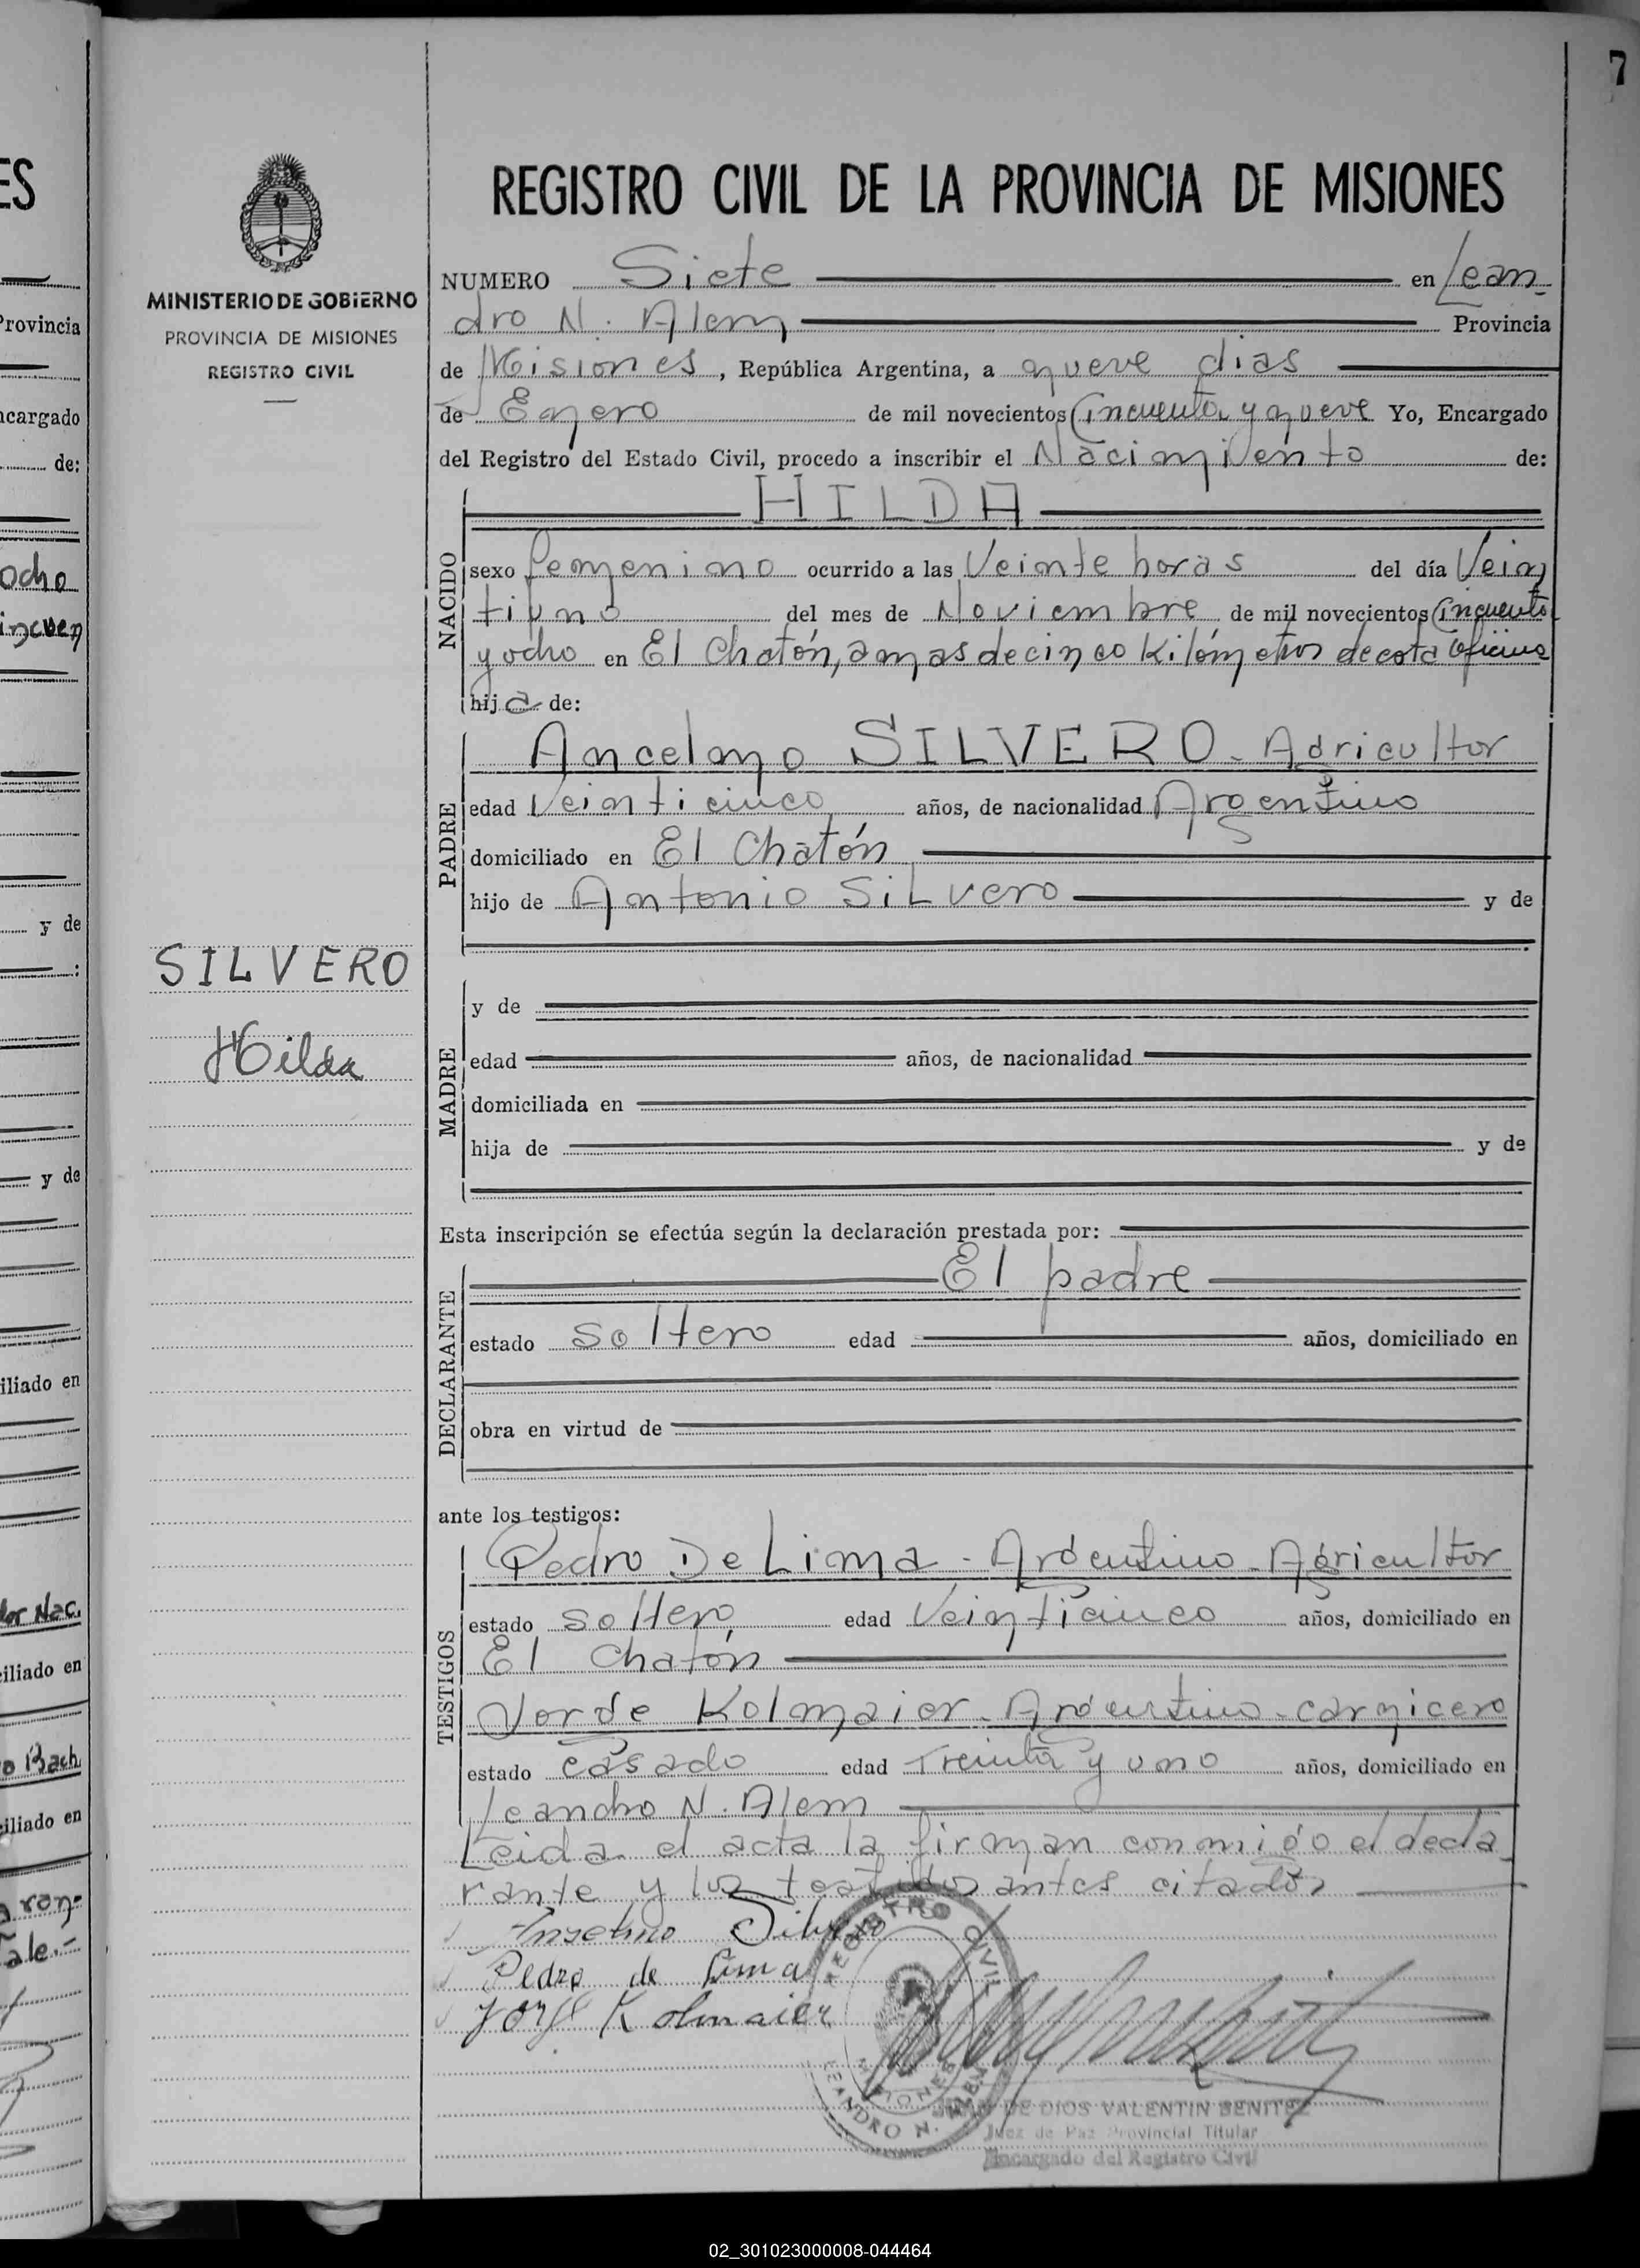 7
ES
Provincia
ncargado
de:
ocho
incuen
y de
y de
iliado en
dor Nac.
iliado en
o Bach
iliado en
MINISTERIO DE GOBIERNO
PROVINCIA DE MISIONES
REGISTRO CIVIL
SILVERO
Hilda
REGISTRO CIVIL DE LA PROVINCIA DE MISIONES
NUMERO Siete en Lean-
dro N. Alem Provincia
de Misiones, República Argentina, a nueve dias
de Enero de mil novecientos Cincuenta y nueve Yo, Encargado
del Registro del Estado Civil, procedo a inscribir el Nacimiento de:
HILDA
NACIDO
sexo femenino ocurrido a las Veinte horas del día Vein
tiuno del mes de Noviembre de mil novecientos Cincuenta
y ocho en El Chatón, a mas de cinco Kilómetros de esta Oficina
hija de:
PADRE
Ancelmo SILVERO - Agricultor
edad Veinticinco años, de nacionalidad Argentino
domiciliado en El Chatón
hijo de Antonio SiLvero y de
MADRE
y de
edad años, de nacionalidad
domiciliada en
hija de y de
Esta inscripción se efectúa según la declaración prestada por:
DECLARANTE
El padre
estado soltero edad años, domiciliado en
obra en virtud de
ante los testigos:
TESTIGOS
Pedro De Lima - Argentino - Agricultor
estado soltero edad Veinticinco años, domiciliado en
El Chatón
Jorge Kolmaier - Argentino - carnicero
estado casado edad Treinta y uno años, domiciliado en
Leandro N. Alem
Leida el acta la firman conmigo el decla
rante y los testigos antes citados
Anselmo Silvero
Pedro de Lima
Jorge Kolmaier
REGISTRO CIVIL
MISIONES
LEANDRO N. ALEM
DE DIOS VALENTIN BENITEZ
Juez de Paz Provincial Titular
Encargado del Registro Civil
02_301023000008-044464